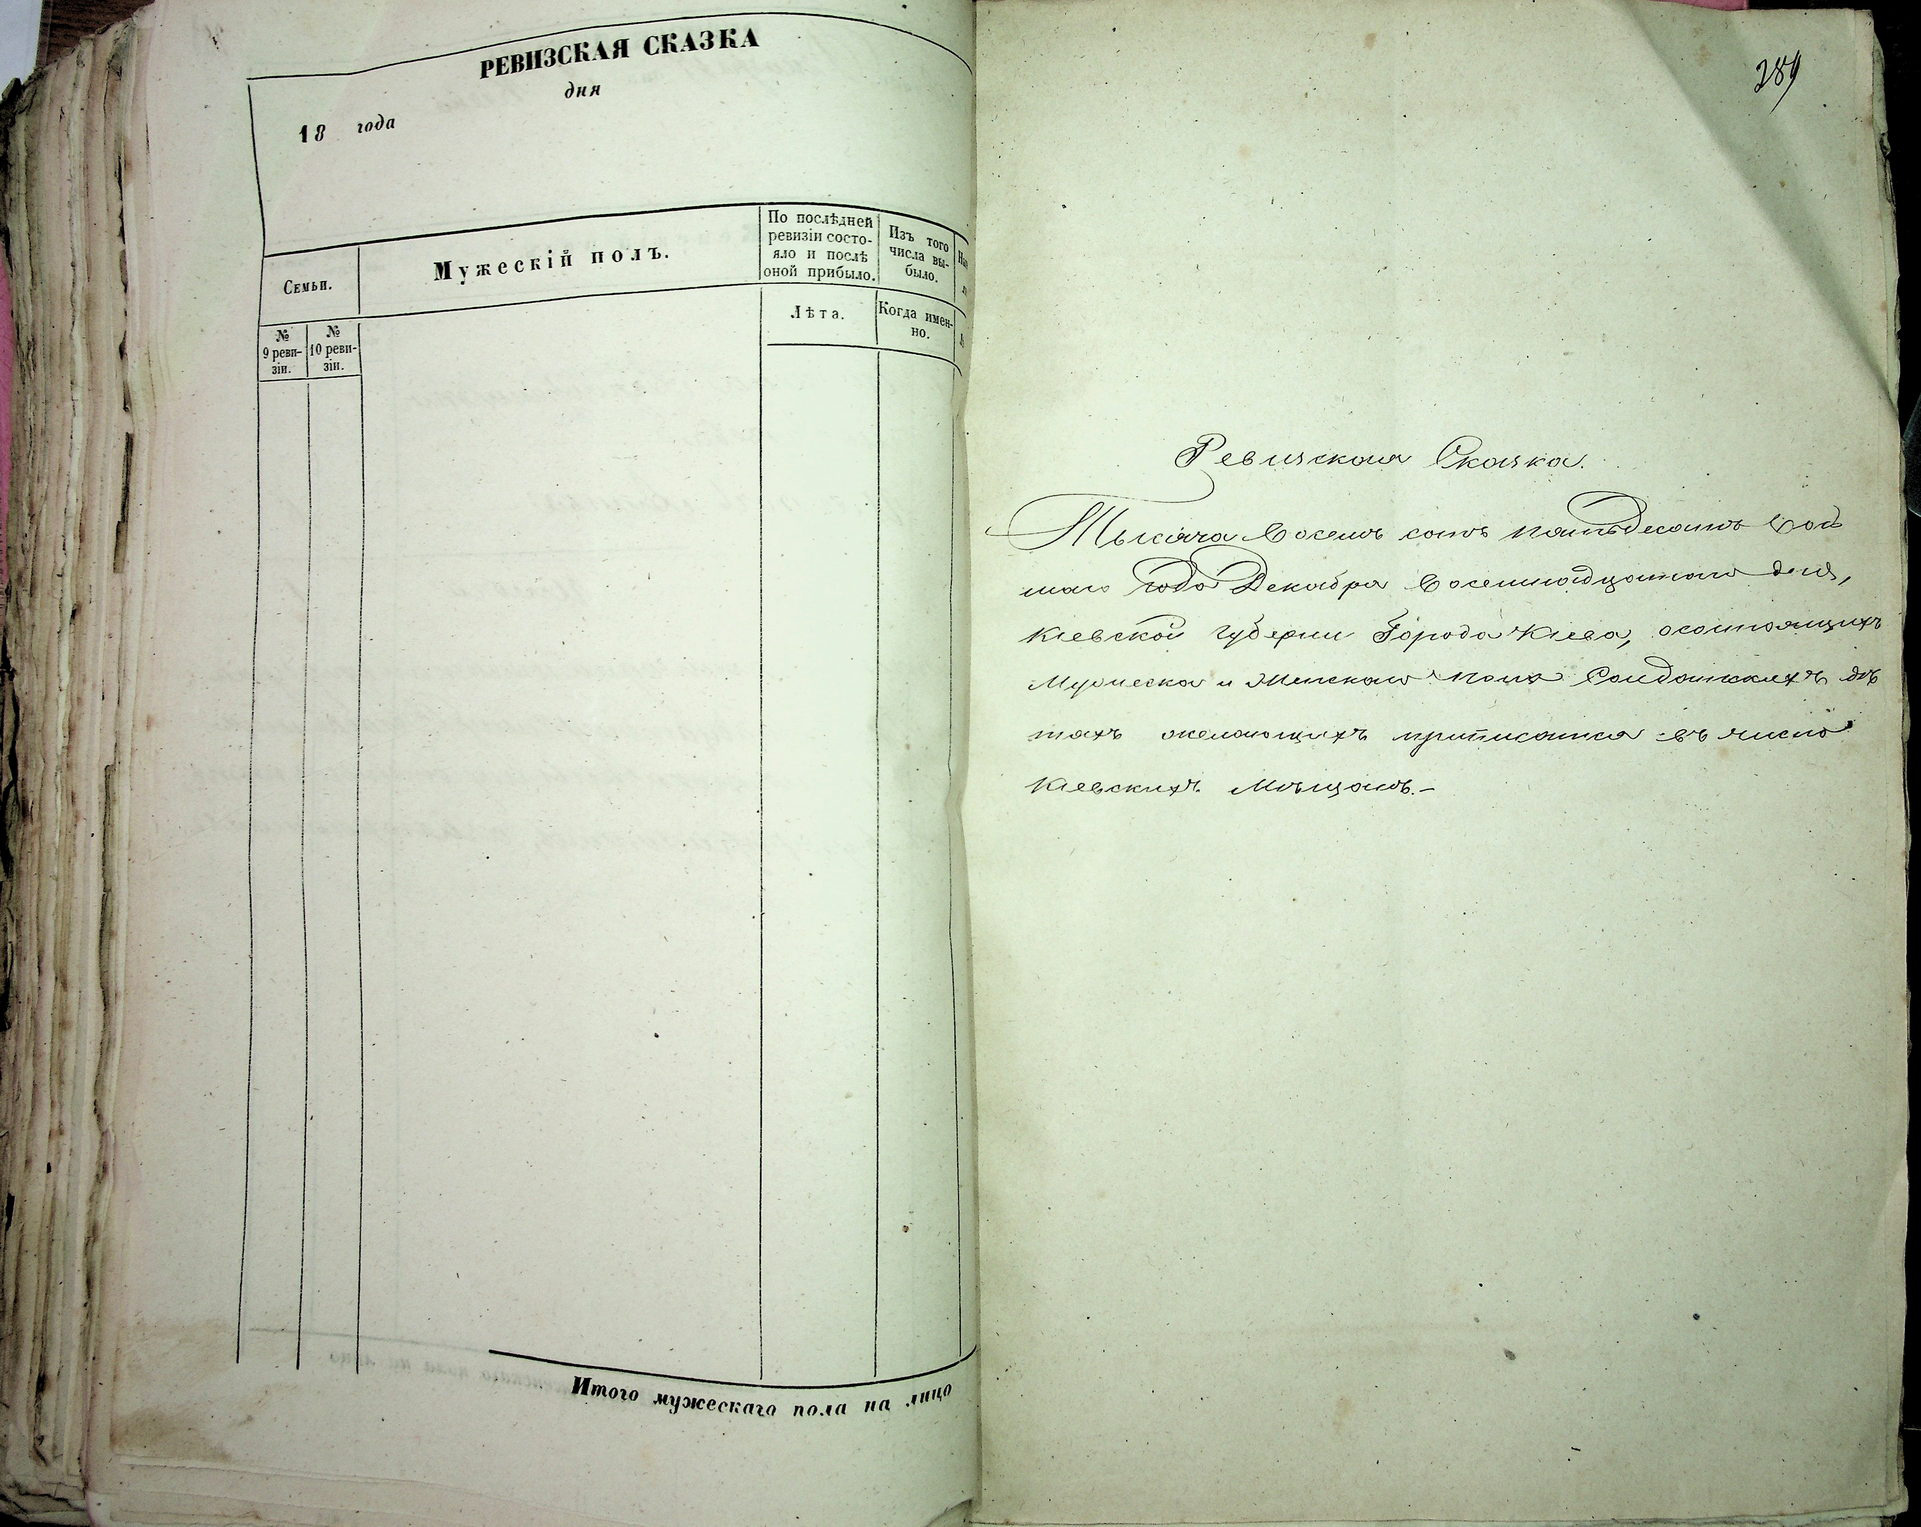 РЕВИЗСКАЯ СКАЗКА
дня
18 года
Семьи.
Мужескій полъ.
По послѣдней
ревизіи состо-
яло и послѣ
оной прибыло.
Изъ того
числа вы-
было.
Лѣта.
Когда имен-
но.
№
9 реви-
зіи.
№
10 реви-
зіи.
Итого мужескаго пола на лицо
289
Ревизская Сказка.
Тысяча Восемъ сотъ пятьдесятъ Вось
маго года Декабря Восемнадцатаго дня,
Кіевской Губерніи Города Кіева, осостоящихъ
Мужеска и Женскаго пола Солдатскихъ дѣ
тяхъ желающихъ приписатся въ число
Кіевскихъ Мѣщанъ.–